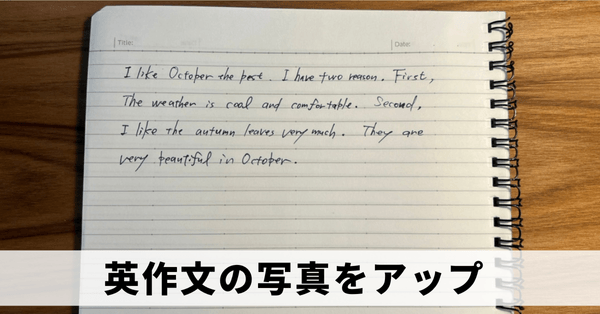 Title:
Date:
I like October the best. I have two reason. First,
The weather is cool and comfortable. Second,
I like the autumn leaves very much. They are
very beautiful in October.
英作文の写真をアップ